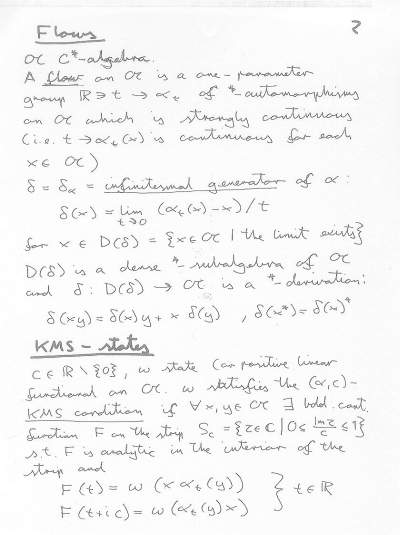 Flows 2
𝔄 C*-algebra.
A flow on 𝔄 is a one-parameter
group ℝ∋t → α_t of *-automorphisms
on 𝔄 which is strongly continuous
(i.e. t → α_t(x) is continuous for each
x ∈ 𝔄)
δ = δ_α = infinitesimal generator of α:
δ(x) = lim_{t→0} (α_t(x) - x)/t
for x ∈ D(δ) = {x ∈ 𝔄 | the limit exists}
D(δ) is a dense *-subalgebra of 𝔄
and δ: D(δ) → 𝔄 is a *-derivation:
δ(xy) = δ(x)y + x δ(y) , δ(x*) = δ(x)*
KMS - states
c ∈ ℝ \ {0}, ω state (or positive linear
functional on 𝔄. ω satisfies the (α,c)-
KMS condition if ∀ x,y ∈ 𝔄 ∃ bdd. cont.
function F on the strip S_c = {z ∈ ℂ | 0 ≤ Im z/c ≤ 1}
s.t. F is analytic in the interior of the
strip and
F(t) = ω(x α_t(y)) } t ∈ ℝ
F(t+ic) = ω(α_t(y)x)